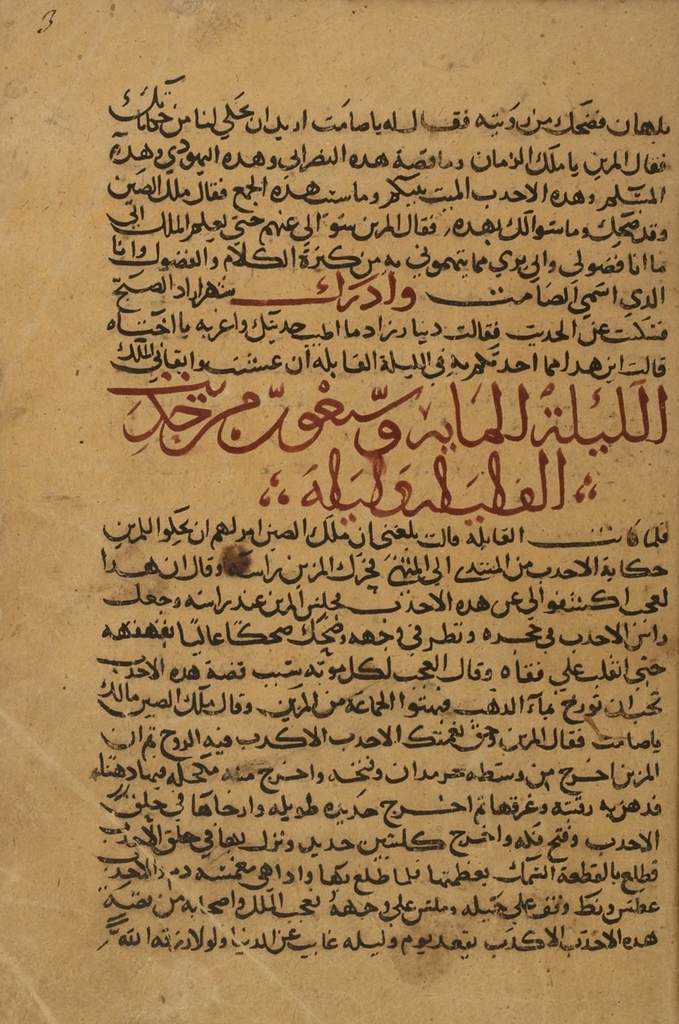 3
فضحك من رويته فقال له يا صامت اريد ان تحكي لنا من حكاياتك
فقال المزين يا ملك الزمان وما قصة هذه النصراني وهذه اليهودي وهذه
المسلم وهذه الاحدب الميت بينكم وما سبب هذه الجمع فقال ملك الصين
وقد ضحك وما سوالك بهذه فقال المزين سوالي عنهم حتى يعلم الملك اني
ما انا فضولي واني بري مما يتهموني به من كثرة الكلام والفضول وانا
الذي اسمي الصامت وادرك شهرازاد الصبح
فسكتت عن الحديث فقالت دينارزاد ما اطيب حديثك واعزبه يا اختاه
قالت اين هدا مما احدثكم به في الليلة القابله ان عشت وابقاني الملك
الليلة المايه وسبعون من حديث
الف ليله وليله
فلما كانت القابلة قالت بلغني ان ملك الصين امرلهم ان يحكوا للمزين
حكاية الاحدب من المبتدي الي المنتهى فحرك المزين راسه وقال ان هدا
لعجب اكشفوا لي عن هده الاحدب فجلس المزين عند راسه وجعل
راس الاحدب في حجره ونظر في وجهه وضحك ضحكا عاليا بقهقهه
حتي انقلب علي قفاه وقال العجب لكل موته سبب قصة هده الاحدب
تجب ان تورخ بماء الدهب فبهتوا الجماعه من المزين وقال ملك الصين مالك
يا صامت فقال المزين وحق نعمتك الاحدب الاكدب فيه الروح ثم ان
المزين اخرج من وسطه حرمدان وفتحه واخرج منه مكحله فيها دهنا
فدهن به رقبته وعرقها ثم اخرج حديده طويله وارخاها في حلق
الاحدب وفتح فكه واخرج كلبتين حديد ونزل بها في حلق الاحدب
فطلع بالقطعة السمك بعظمها فلما طلع بها وادا هي مغمسه دم والاحدب
عطس ونط وقف علي حيله وملس علي وجهه فعجب الملك واصحابه من قصة
هده الاحدب الاكدب بقعد يوم وليله غايب عن الدنيا ولولا رزقه الله